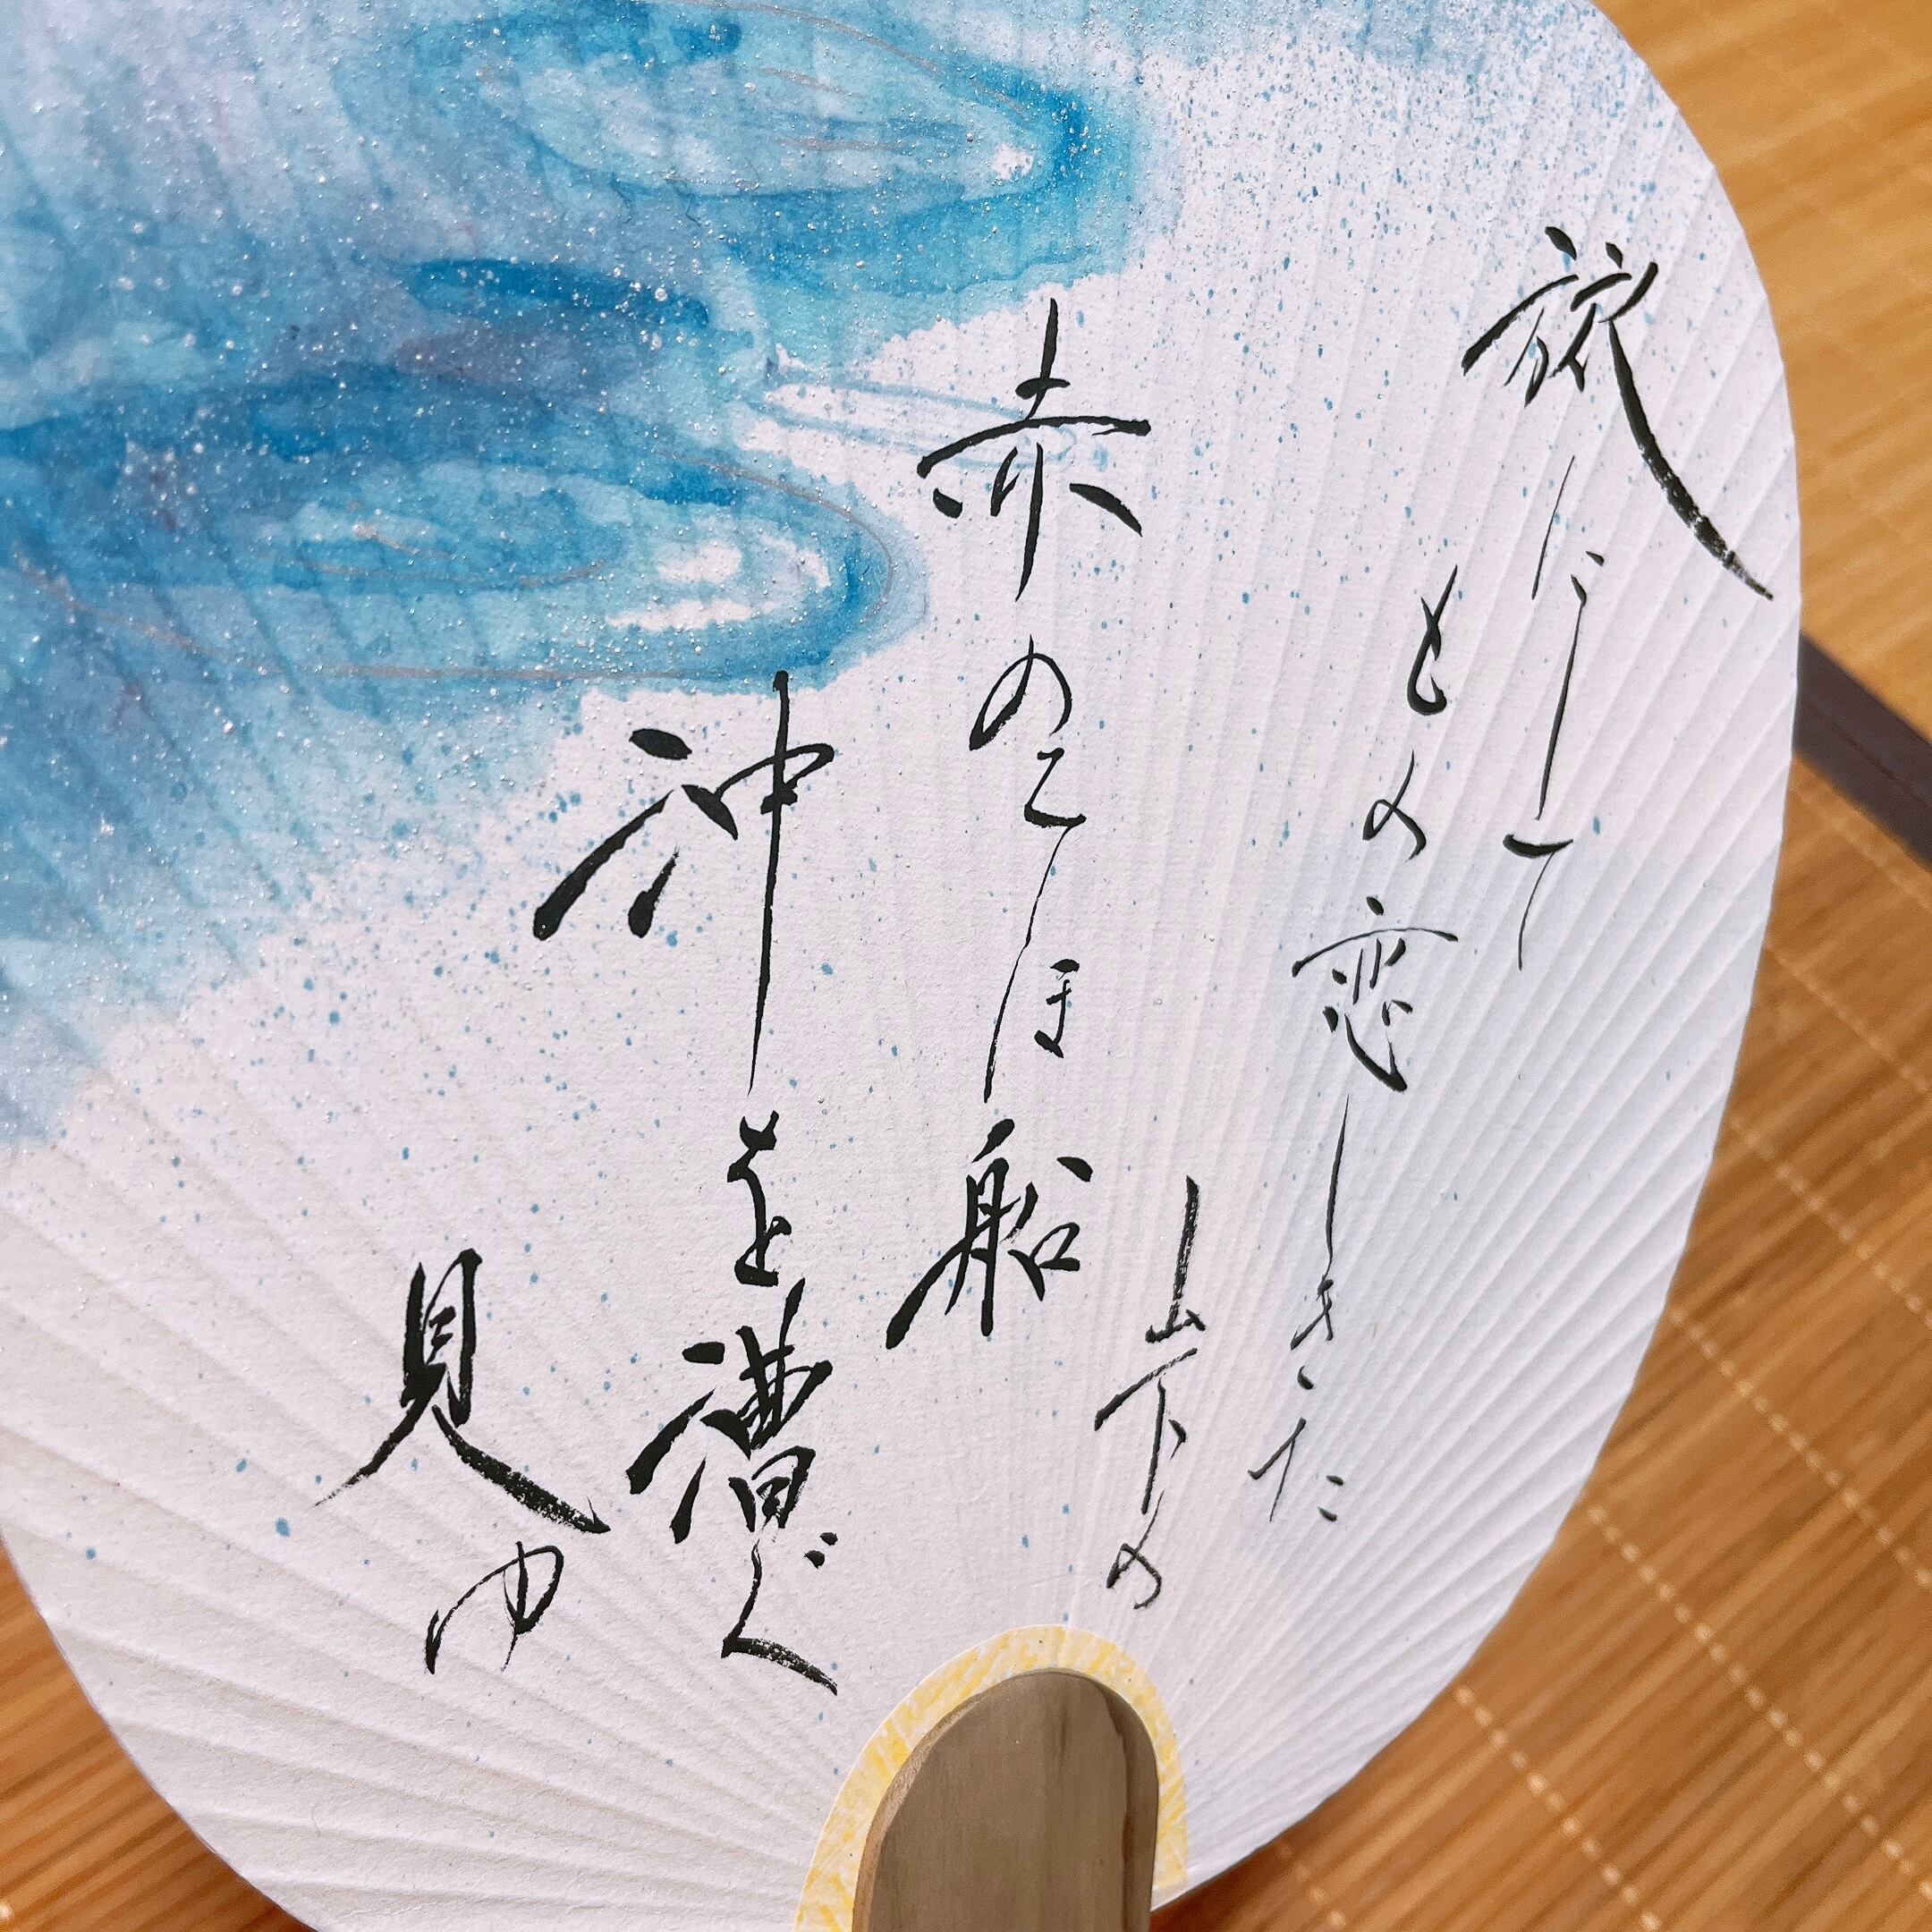 旅にして
もの恋しきに
山下の
赤のそほ船
沖を漕ぐ
見ゆ